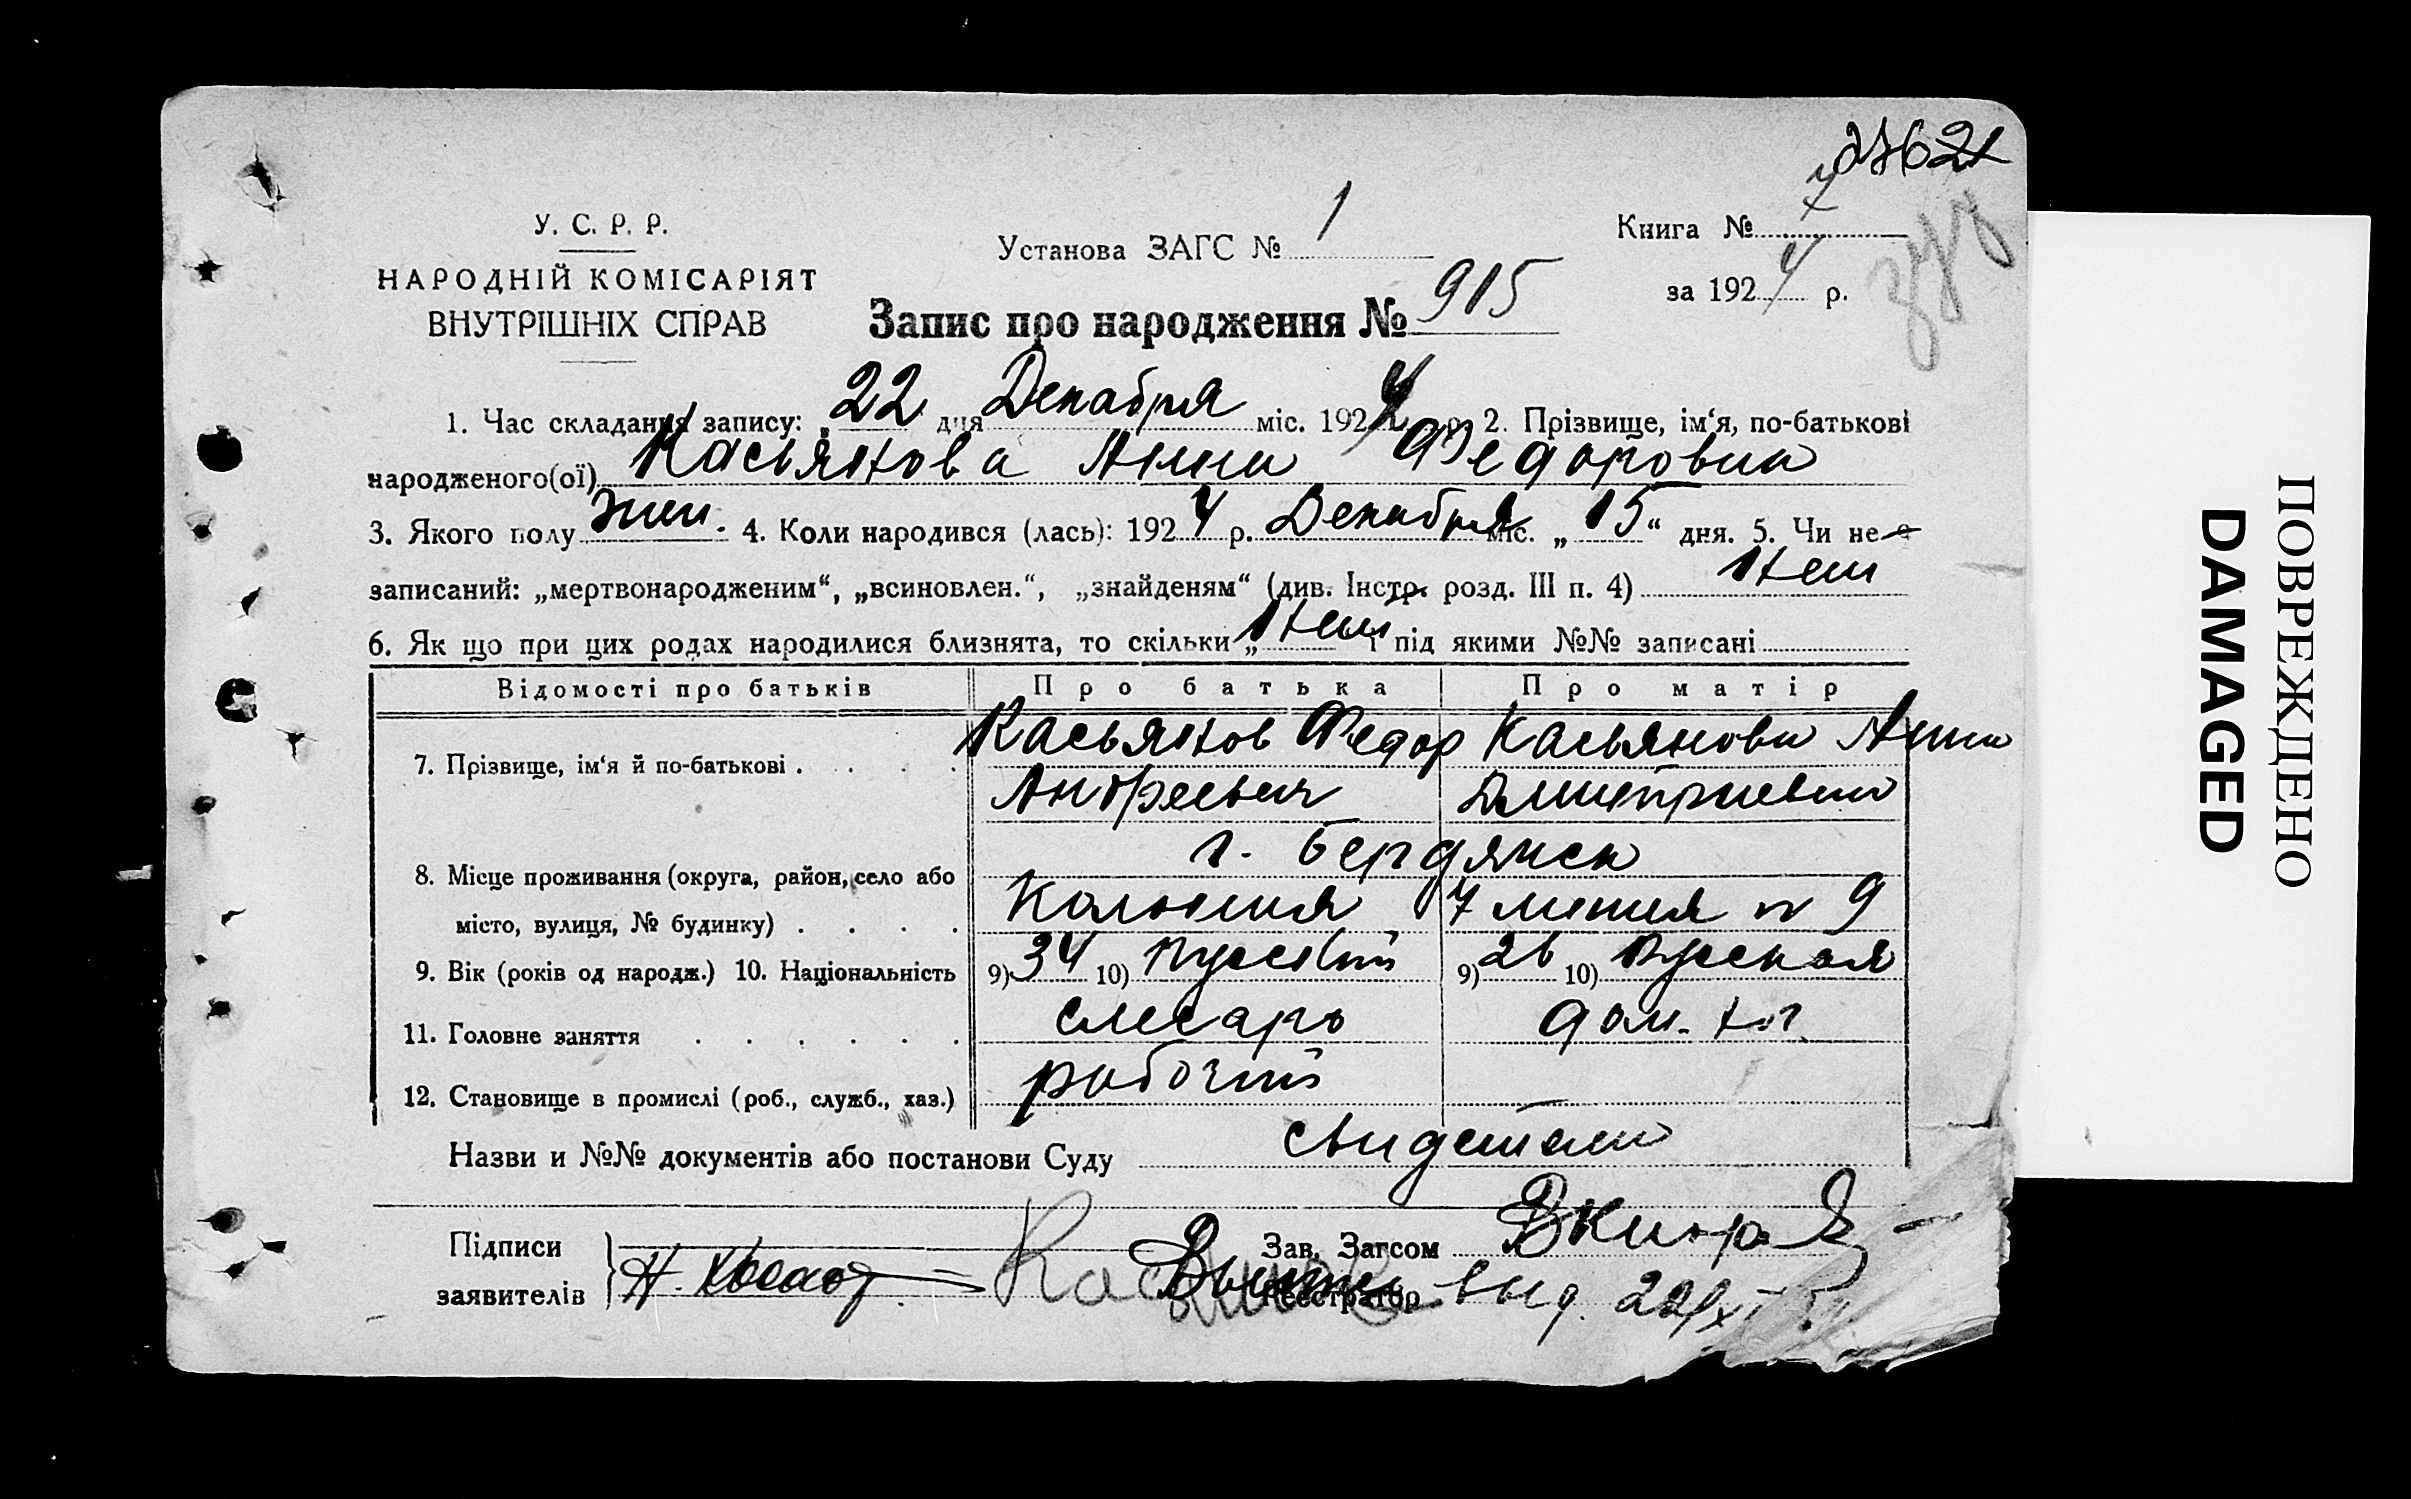 У. С. Р. Р.
НАРОДНІЙ КОМІСАРІЯТ
ВНУТРІШНІХ СПРАВ
Установа ЗАГС № 1
Книга № 7
за 1924 р.
Запис про народження № 915
1. Час складання запису: „22 дня Декабря міс. 1924 р. 2. Прізвище, ім‘я, по-батькові
народженого(ої) Касьянова Анна Федоровна
3. Якого полу жен. 4. Коли народився (лась): 1924 р. Декабря міс. „15“ дня. 5. Чи не є
записаний: „мертвонародженим“, „всиновлен.“, „знайденям“ (див. Інстр. розд. III п. 4) Нет
6. Як що при цих родах народилися близнята, то скільки „Нет і під якими №№ записані
Відомості про батьків Про батька Про матір
7. Прізвище, ім‘я й по-батькові . . . . Касьянов Федор Андреевич Касьянова Анна Дмитриевна
8. Місце проживання (округа, район, село або
місто, вулиця, № будинку) . . . . г. Бердянск Колония 7 линия № 9
9. Вік (років од народж.) 10. Національність 9) 34 10) Русский 9) 26 10) Русская
11. Головне заняття . . . . . . слесарь дом. хоз.
12. Становище в промислі (роб., служб., хаз.) рабочий
Назви и №№ документів або постанови Суду свидетели
Підписи
заявителів
Зав. Загсом
Реєстратор
ПОВРЕЖДЕНО
DAMAGED